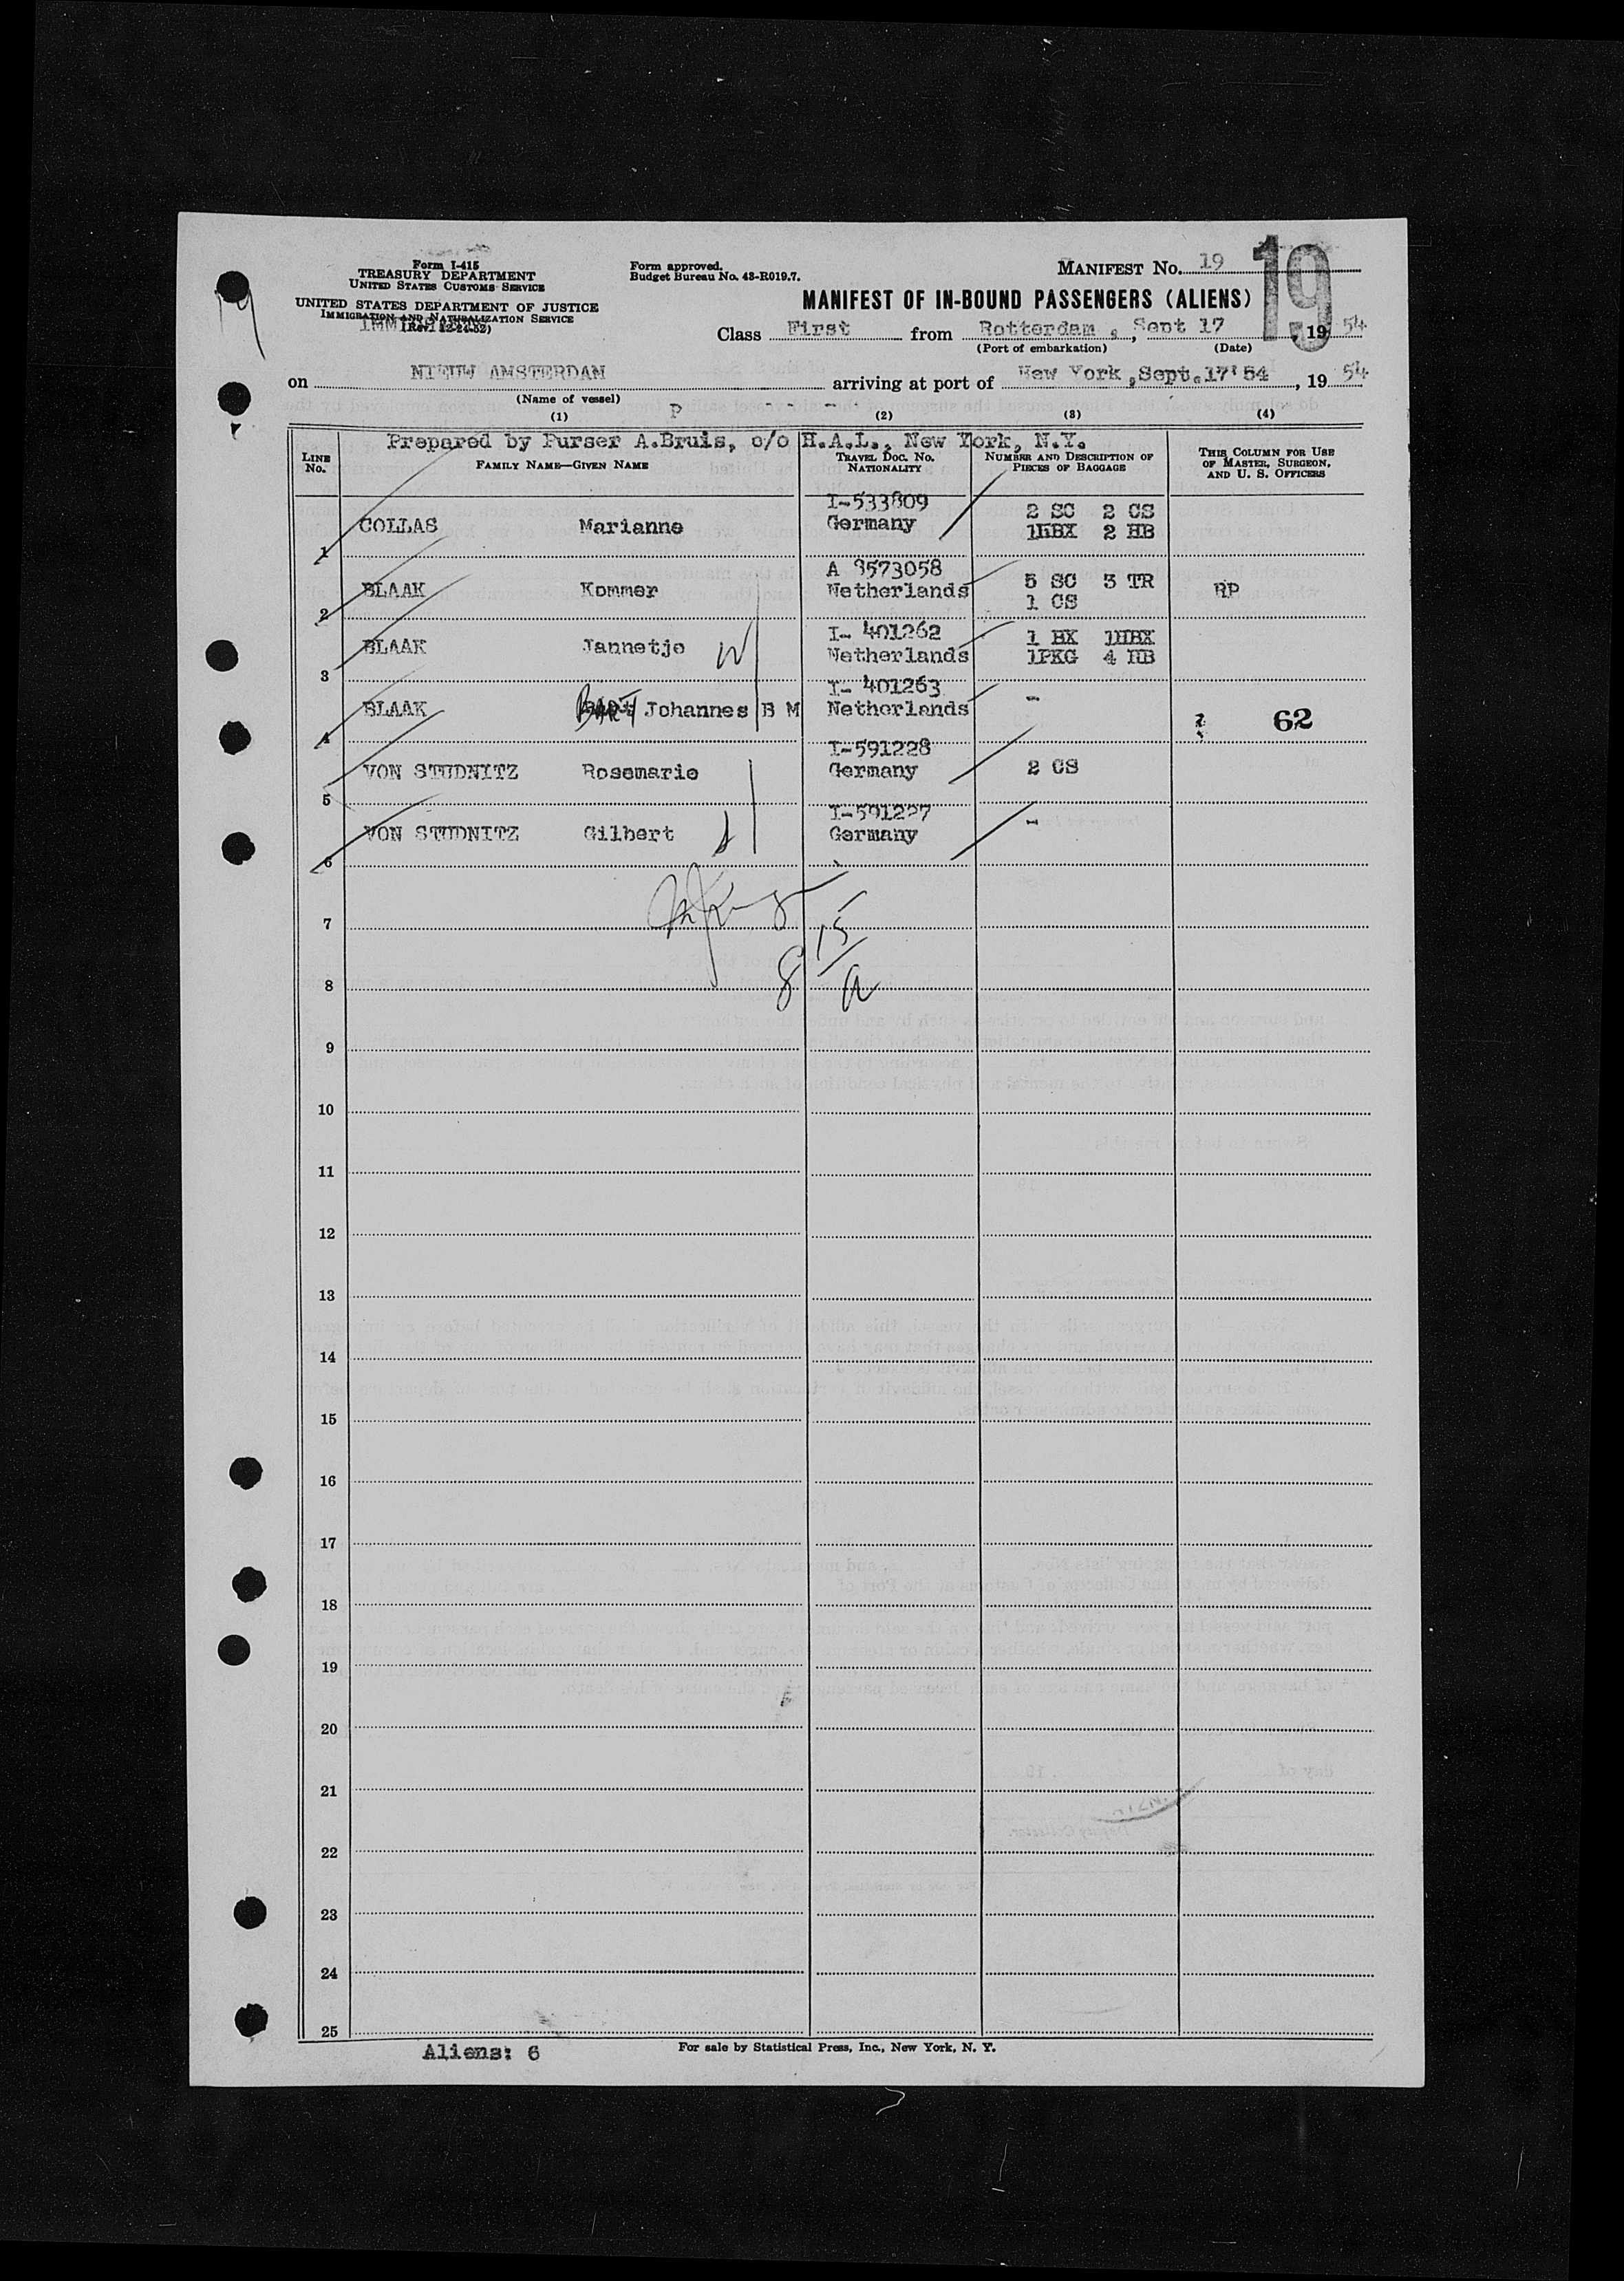 Form I-415
TREASURY DEPARTMENT
UNITED STATES CUSTOMS SERVICE
UNITED STATES DEPARTMENT OF JUSTICE
IMMIGRATION AND NATURALIZATION SERVICE
(Rev. 12-24-52)
Form approved.
Budget Bureau No. 43-R019.7.
MANIFEST No. 19
19
MANIFEST OF IN-BOUND PASSENGERS (ALIENS)
Class First from Rotterdam, Sept 17, 1954
(Port of embarkation) (Date)
on NIEUW AMSTERDAM arriving at port of New York, Sept. 17'54, 1954
(Name of vessel)
(1) P (2) (3) (4)
Prepared by Purser A.Bruis, c/o H.A.L., New York, N.Y.
LINE No. FAMILY NAME—GIVEN NAME TRAVEL DOC. No. NATIONALITY NUMBER AND DESCRIPTION OF PIECES OF BAGGAGE THIS COLUMN FOR USE OF MASTER, SURGEON, AND U. S. OFFICERS
1 COLLAS Marianne I-533809 Germany 2 SC 2 CS 1HBX 2 HB
2 BLAAK Kommer A 8573058 Netherlands 5 SC 3 TR 1 CS RP
3 BLAAK Jannetje I- 401262 Netherlands 1 BX 1HBX 1PKG 4 HB
4 BLAAK BART Johannes B M I- 401263 Netherlands - 62
5 VON STUDNITZ Rosemarie I-591228 Germany 2 CS
6 VON STUDNITZ Gilbert I-591227 Germany -
7
8 8 15/a
9
10
11
12
13
14
15
16
17
18
19
20
21
22
23
24
25
Aliens: 6
For sale by Statistical Press, Inc., New York, N. Y.